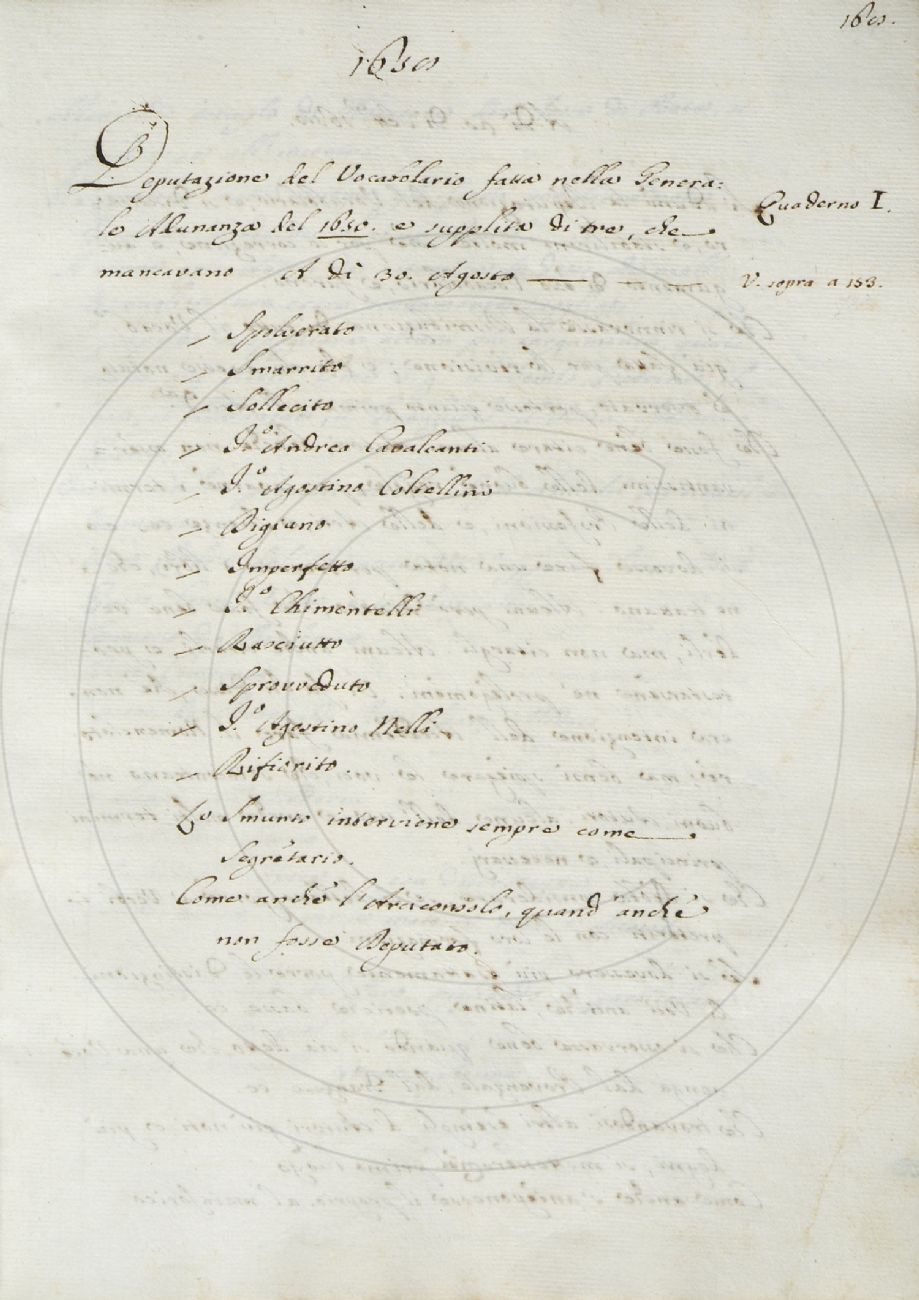 1650
Deputazione del Vocabolario fatta nella Genera:
le Adunanza del 1650. e supplita di tre, che
mancavano A dì 30. Agosto
Quaderno I.
V. sopra a 153.
Spolverato
Smarrito
Sollecito
S.º Andrea Cavalcanti
S.º Agostino Coltellino
Digiuno
Imperfetto
S.º Chimentelli
Rasciutto
Sprovveduto
S.º Agostino Nelli
Rifiorito
Lo Smunto interviene sempre come
Segretario.
Come anche l'Arciconsolo, quand' anche
non fosse Deputato.